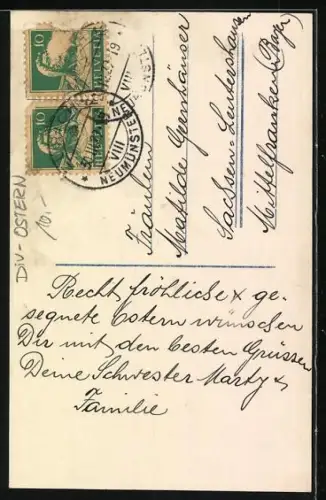 10
HELVETIA
10
HELVETIA
VIII
NEUMÜNSTER
DIV-OSTERN
10.-
Fräulein
Mathilde Gernhäuser
Sachsen-Leutershausen
Mittelfranken (Bayer)
Recht fröhliche & ge-
segnete Ostern wünschen
Dir mit den besten Grüssen
Deine Schwester Marty &
Familie